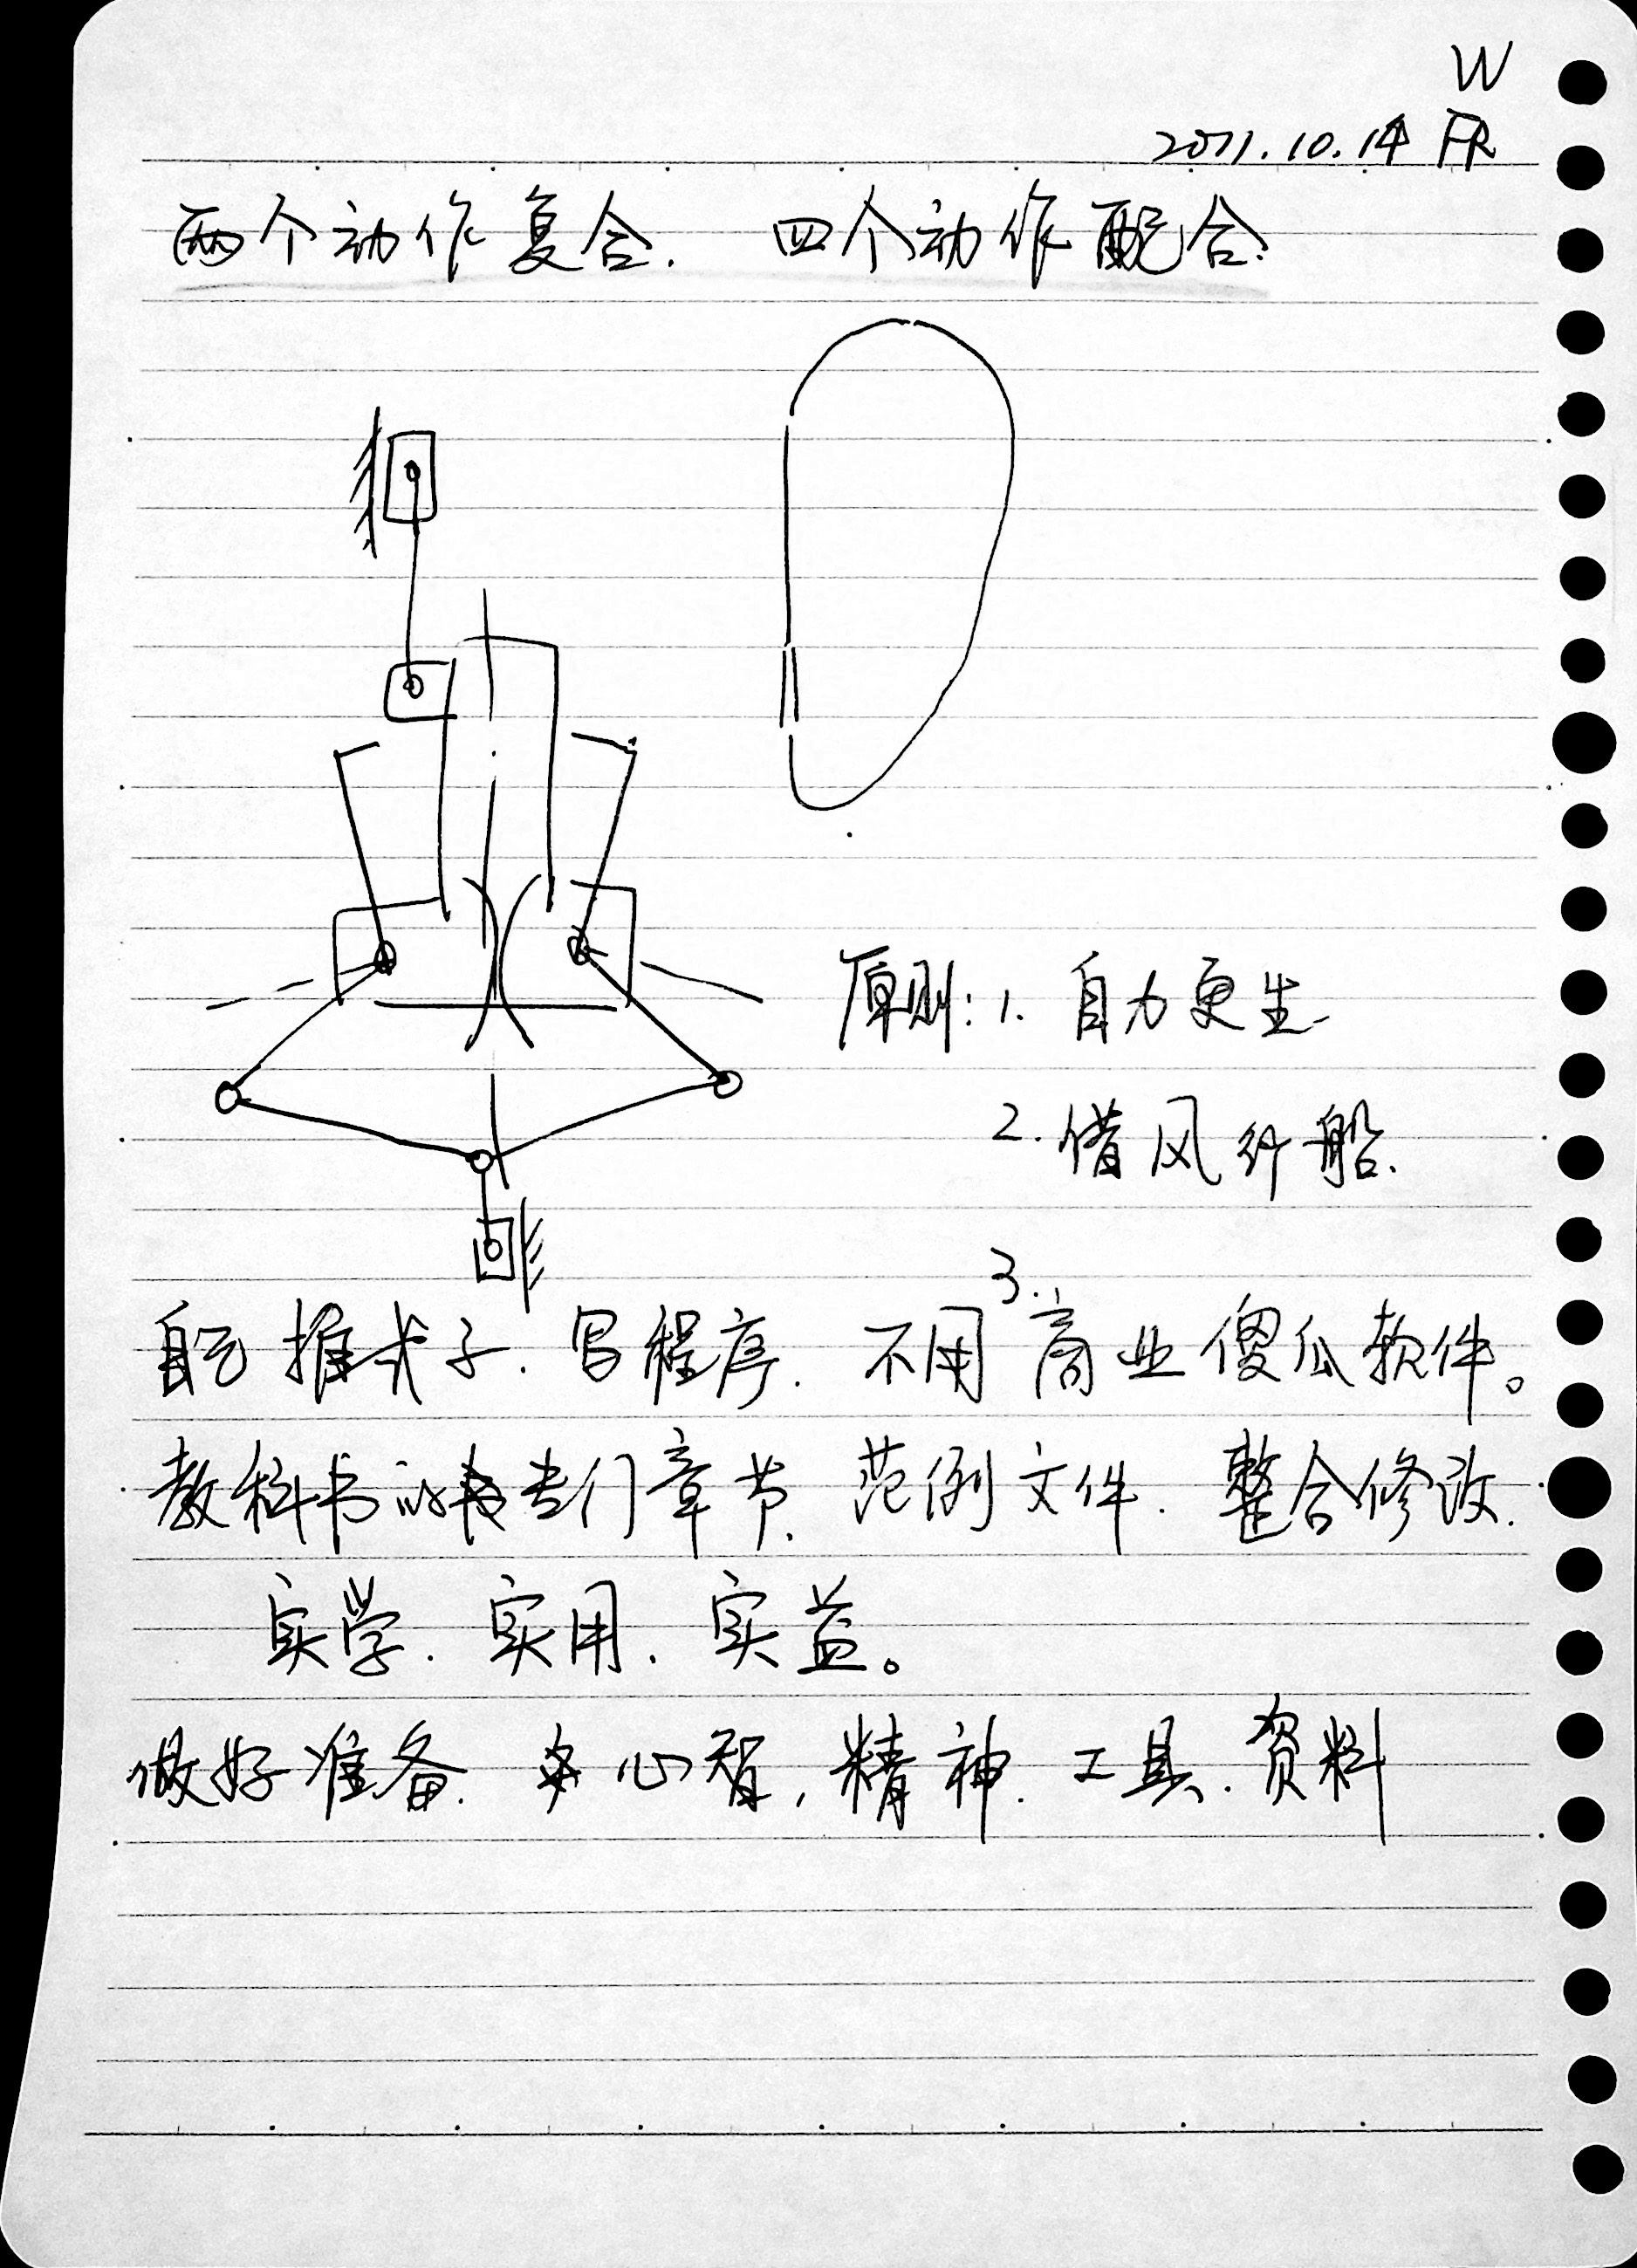 W
2011.10.14 FR
两个动作复合. 四个动作配合.
原则: 1. 自力更生
2. 借风行船.
3.
自己推式子. 写程序. 不用商业傻瓜软件。
教科书的专门章节. 范例文件. 整合修改.
实学. 实用. 实益。
做好准备. 心智, 精神. 工具. 资料